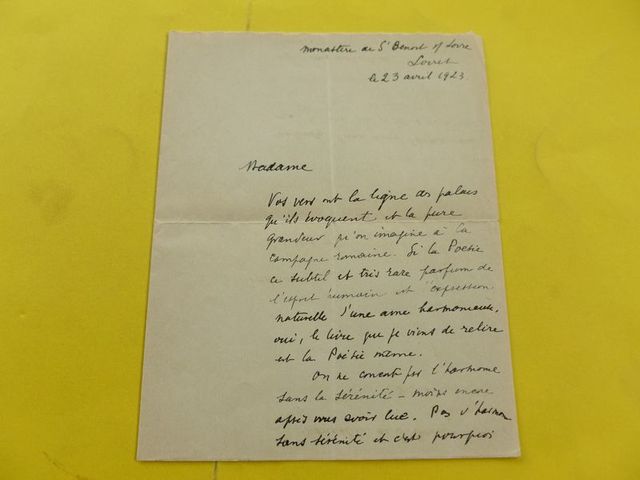 monastère de St Benoit s/ Loire
Loiret
le 23 avril 1923
Madame
Vos vers ont la ligne des palais
qu'ils évoquent et la pure
grandeur qu'on imagine à la
campagne romaine. Si la Poésie
ce subtil et très rare parfum de
l'esprit humain est l'expression
naturelle d'une ame harmonieuse,
oui, le livre que je viens de relire
est la Poésie même.
On ne conçoit pas l'harmonie
sans la sérénité - moins encore
après vous avoir lue. Pas d'harmonie
sans sérénité et c'est pourquoi